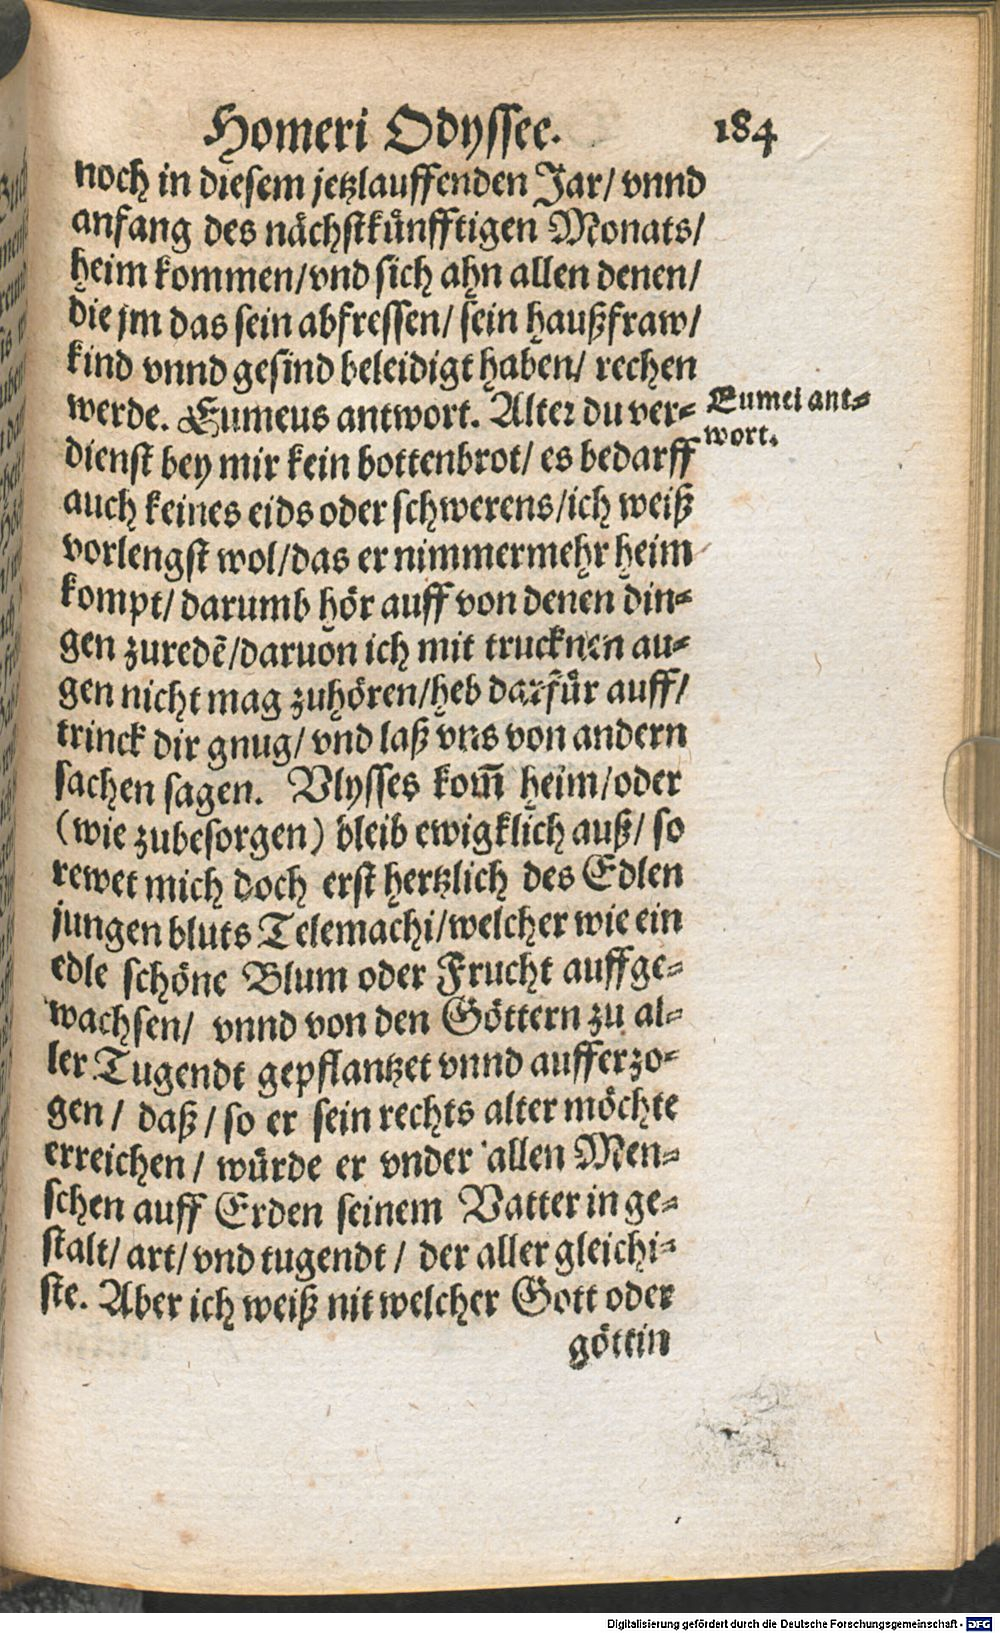 Homeri Odyssee. 184
noch in diesem jetzlauffenden Jar/ vnnd
anfang des nächstkünfftigen Monats/
heim kommen/vnd sich ahn allen denen/
die jm das sein abfressen/ sein haußfraw/
kind vnnd gesind beleidigt haben/ rechen
werde. Eumeus antwort. Alter du ver-
Eumei ant-
wort.
dienst bey mir kein bottenbrot/ es bedarff
auch keines eids oder schwerens/ich weiß
vorlengst wol/das er nimmermehr heim
kompt/ darumb hör auff von denen din-
gen zuredẽ/daruon ich mit trucknen au-
gen nicht mag zuhören/heb darfür auff/
trinck dir gnug/ vnd laß vns von andern
sachen sagen. Vlysses kom̃ heim/oder
(wie zubesorgen) bleib ewigklich auß/ so
rewet mich doch erst hertzlich des Edlen
jungen bluts Telemachi/welcher wie ein
edle schöne Blum oder Frucht auffge-
wachsen/ vnnd von den Göttern zu al-
ler Tugendt gepflantzet vnnd aufferzo-
gen/ daß/ so er sein rechts alter möchte
erreichen/ würde er vnder allen Men-
schen auff Erden seinem Vatter in ge-
stalt/ art/ vnd tugendt/ der aller gleichi-
ste. Aber ich weiß nit welcher Gott oder
göttin
Digitalisierung gefördert durch die Deutsche Forschungsgemeinschaft - DFG